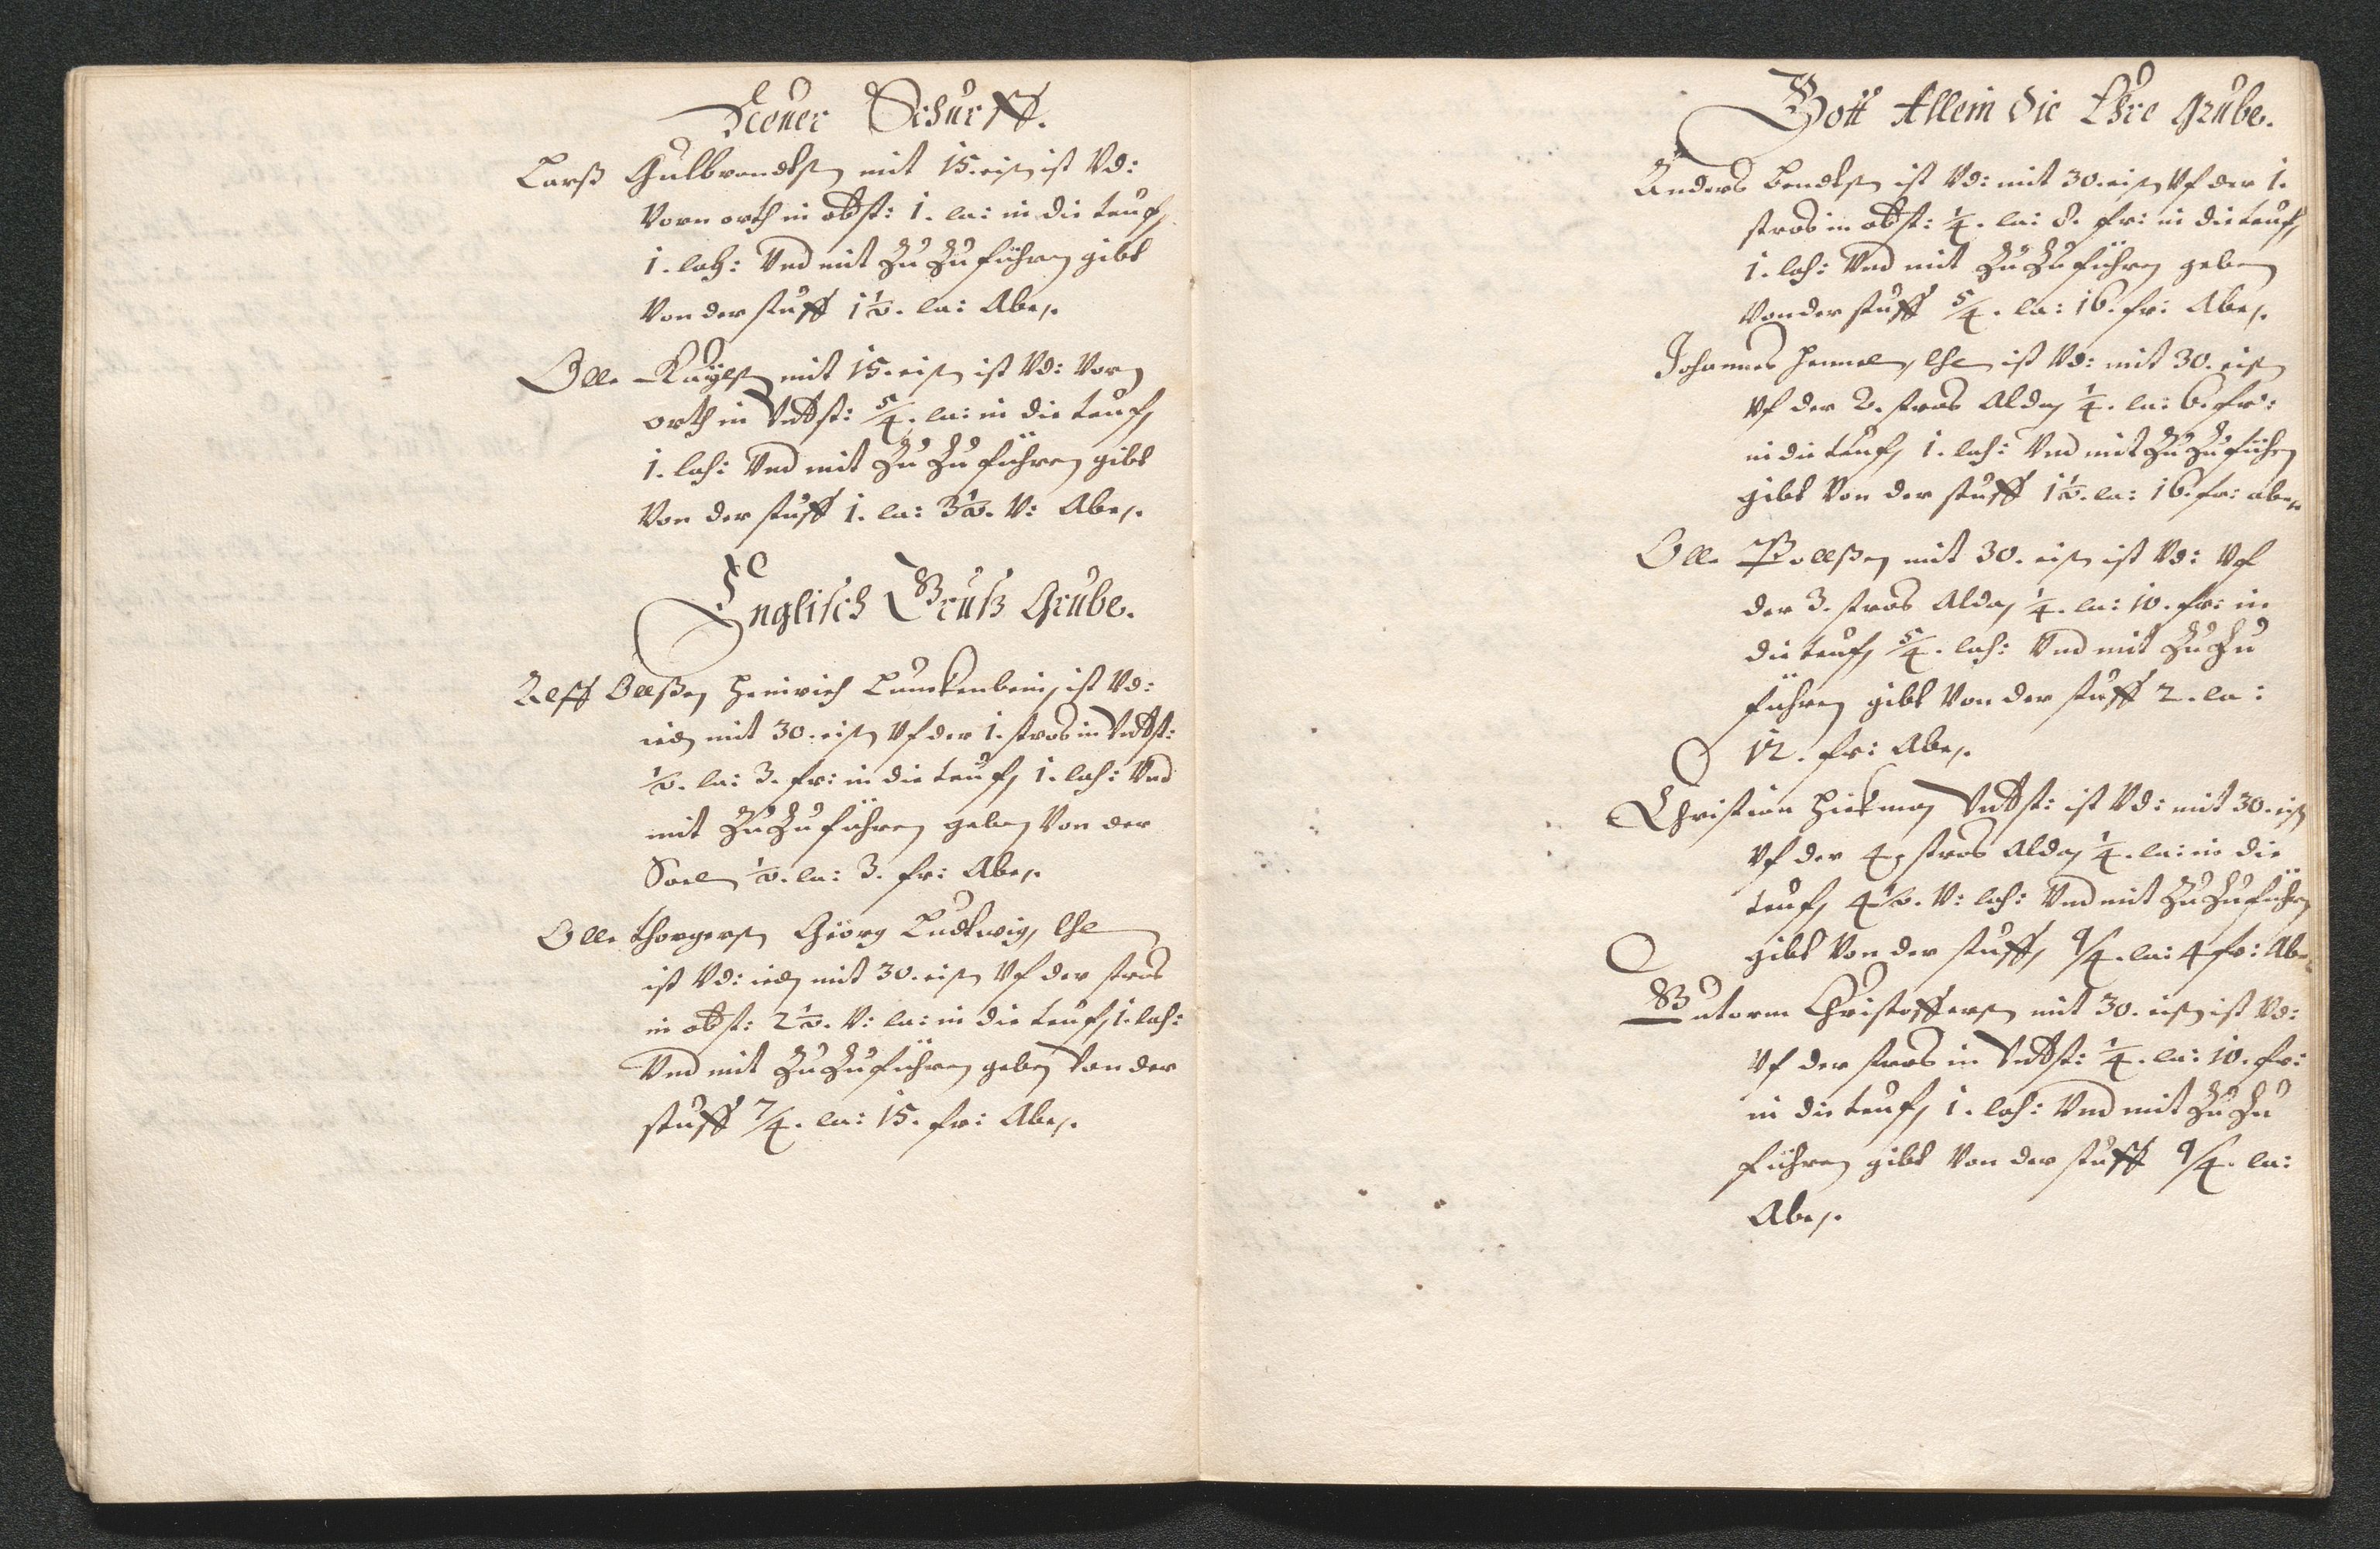 Neuer Schurff.
Larß Gulbrandtsen mit 15. eisen ist Vd:
Vorn orth in obst: 1. la: in die teuff
1. lach: Vnd mit Zu Zu führen gibt
Von der stuff 1½. la: Abe.
Olle mit 15. eisen ist Vd: Vorn
orth in Vndst: 5/4. la: in die teuff
1. lach: Vnd mit Zu Zu führen gibt
Von der stuff 1. la: 3½. V: Abe.
Englisch Gruß Grube.
Alff Ollßen Heinrich Lunckenbein, ist Vd:
ied mit 30. eisen Vf der 1. stros in Vndst:
½. la: 3. fr: in die teuff 1. lach: Vnd
mit Zu Zu führen geben Von der
Soel ½. la: 3. fr: Abe.
Olle thorgersen Geörg Ludtwig,
ist Vd: ied mit 30. eisen Vf der stros
in obst: 2½. V: la: in die teuff 1. lach:
Vnd mit Zu Zu führen geben Von der
stuff 7/4. la: 15. fr: Abe.
Gott Allein die Ehre Grube.
Anders Bendtsen ist Vd: mit 30. eisen Vf der 1.
stros in obst: ¼. la: 8. fr: in die teuff
1. lach: Vnd mit Zu Zu führen geben
Von der stuff 5/4. la: 16. fr: Abe.
Johannes ist Vd: mit 30. eisen
Vf der 2. stros Alda ¼. la: 6. fr:
in die teuff 1. lach: Vnd mit Zu Zu führen
gibt Von der stuff 1½. la: 16. fr: abe.
Olle Pollßen mit 30. eisen ist Vd: Vf
der 3. stros Alda ¼. la: 10. fr: in
die teuff 5/4. lach: Vnd mit Zu Zu
führen gibt Von der stuff 2. la:
12. fr: Abe.
Christian Hickman Vndst: ist Vd: mit 30. eisen
Vf der 4. stros Alda ¼. la: in die
teuff 4½. V: lach: Vnd mit Zu Zu führen
gibt Von der stuff, 9/4. la: 4 fr: Abe.
Gutorm Christoffersen mit 30. eisen ist Vd:
Vf der stros in Vndst: ¼. la: 10. fr:
in die teuff 1. lach: Vnd mit Zu Zu
führen gibt Von der stuff 9/4. la:
Abe.